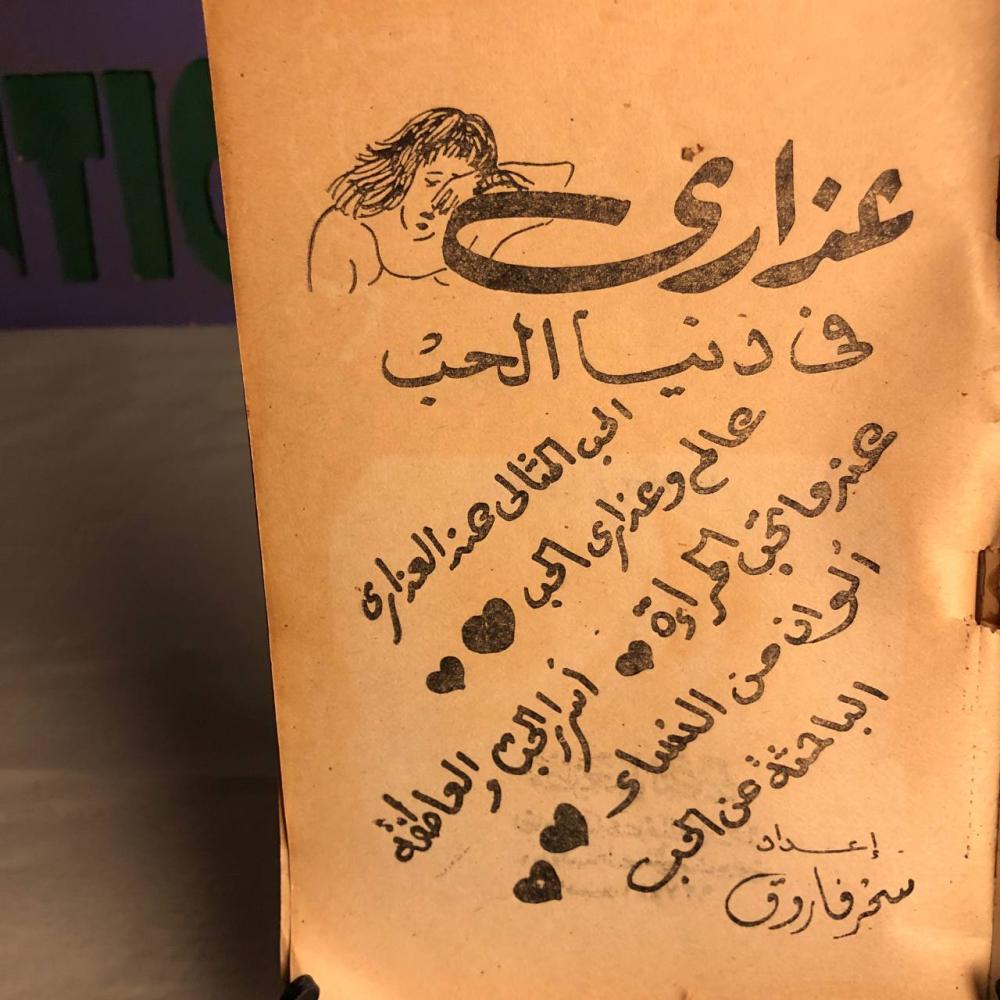 NTIO
عذارى
فى دنيا الحب
الحب المثالى عند العذارى
عالم وعذارى الحب
عندما تحب المرأة
أسرار الحب والعاطفة
ألوان من النساء
الباحثة عن الحب
إعداد
سحر فاروق